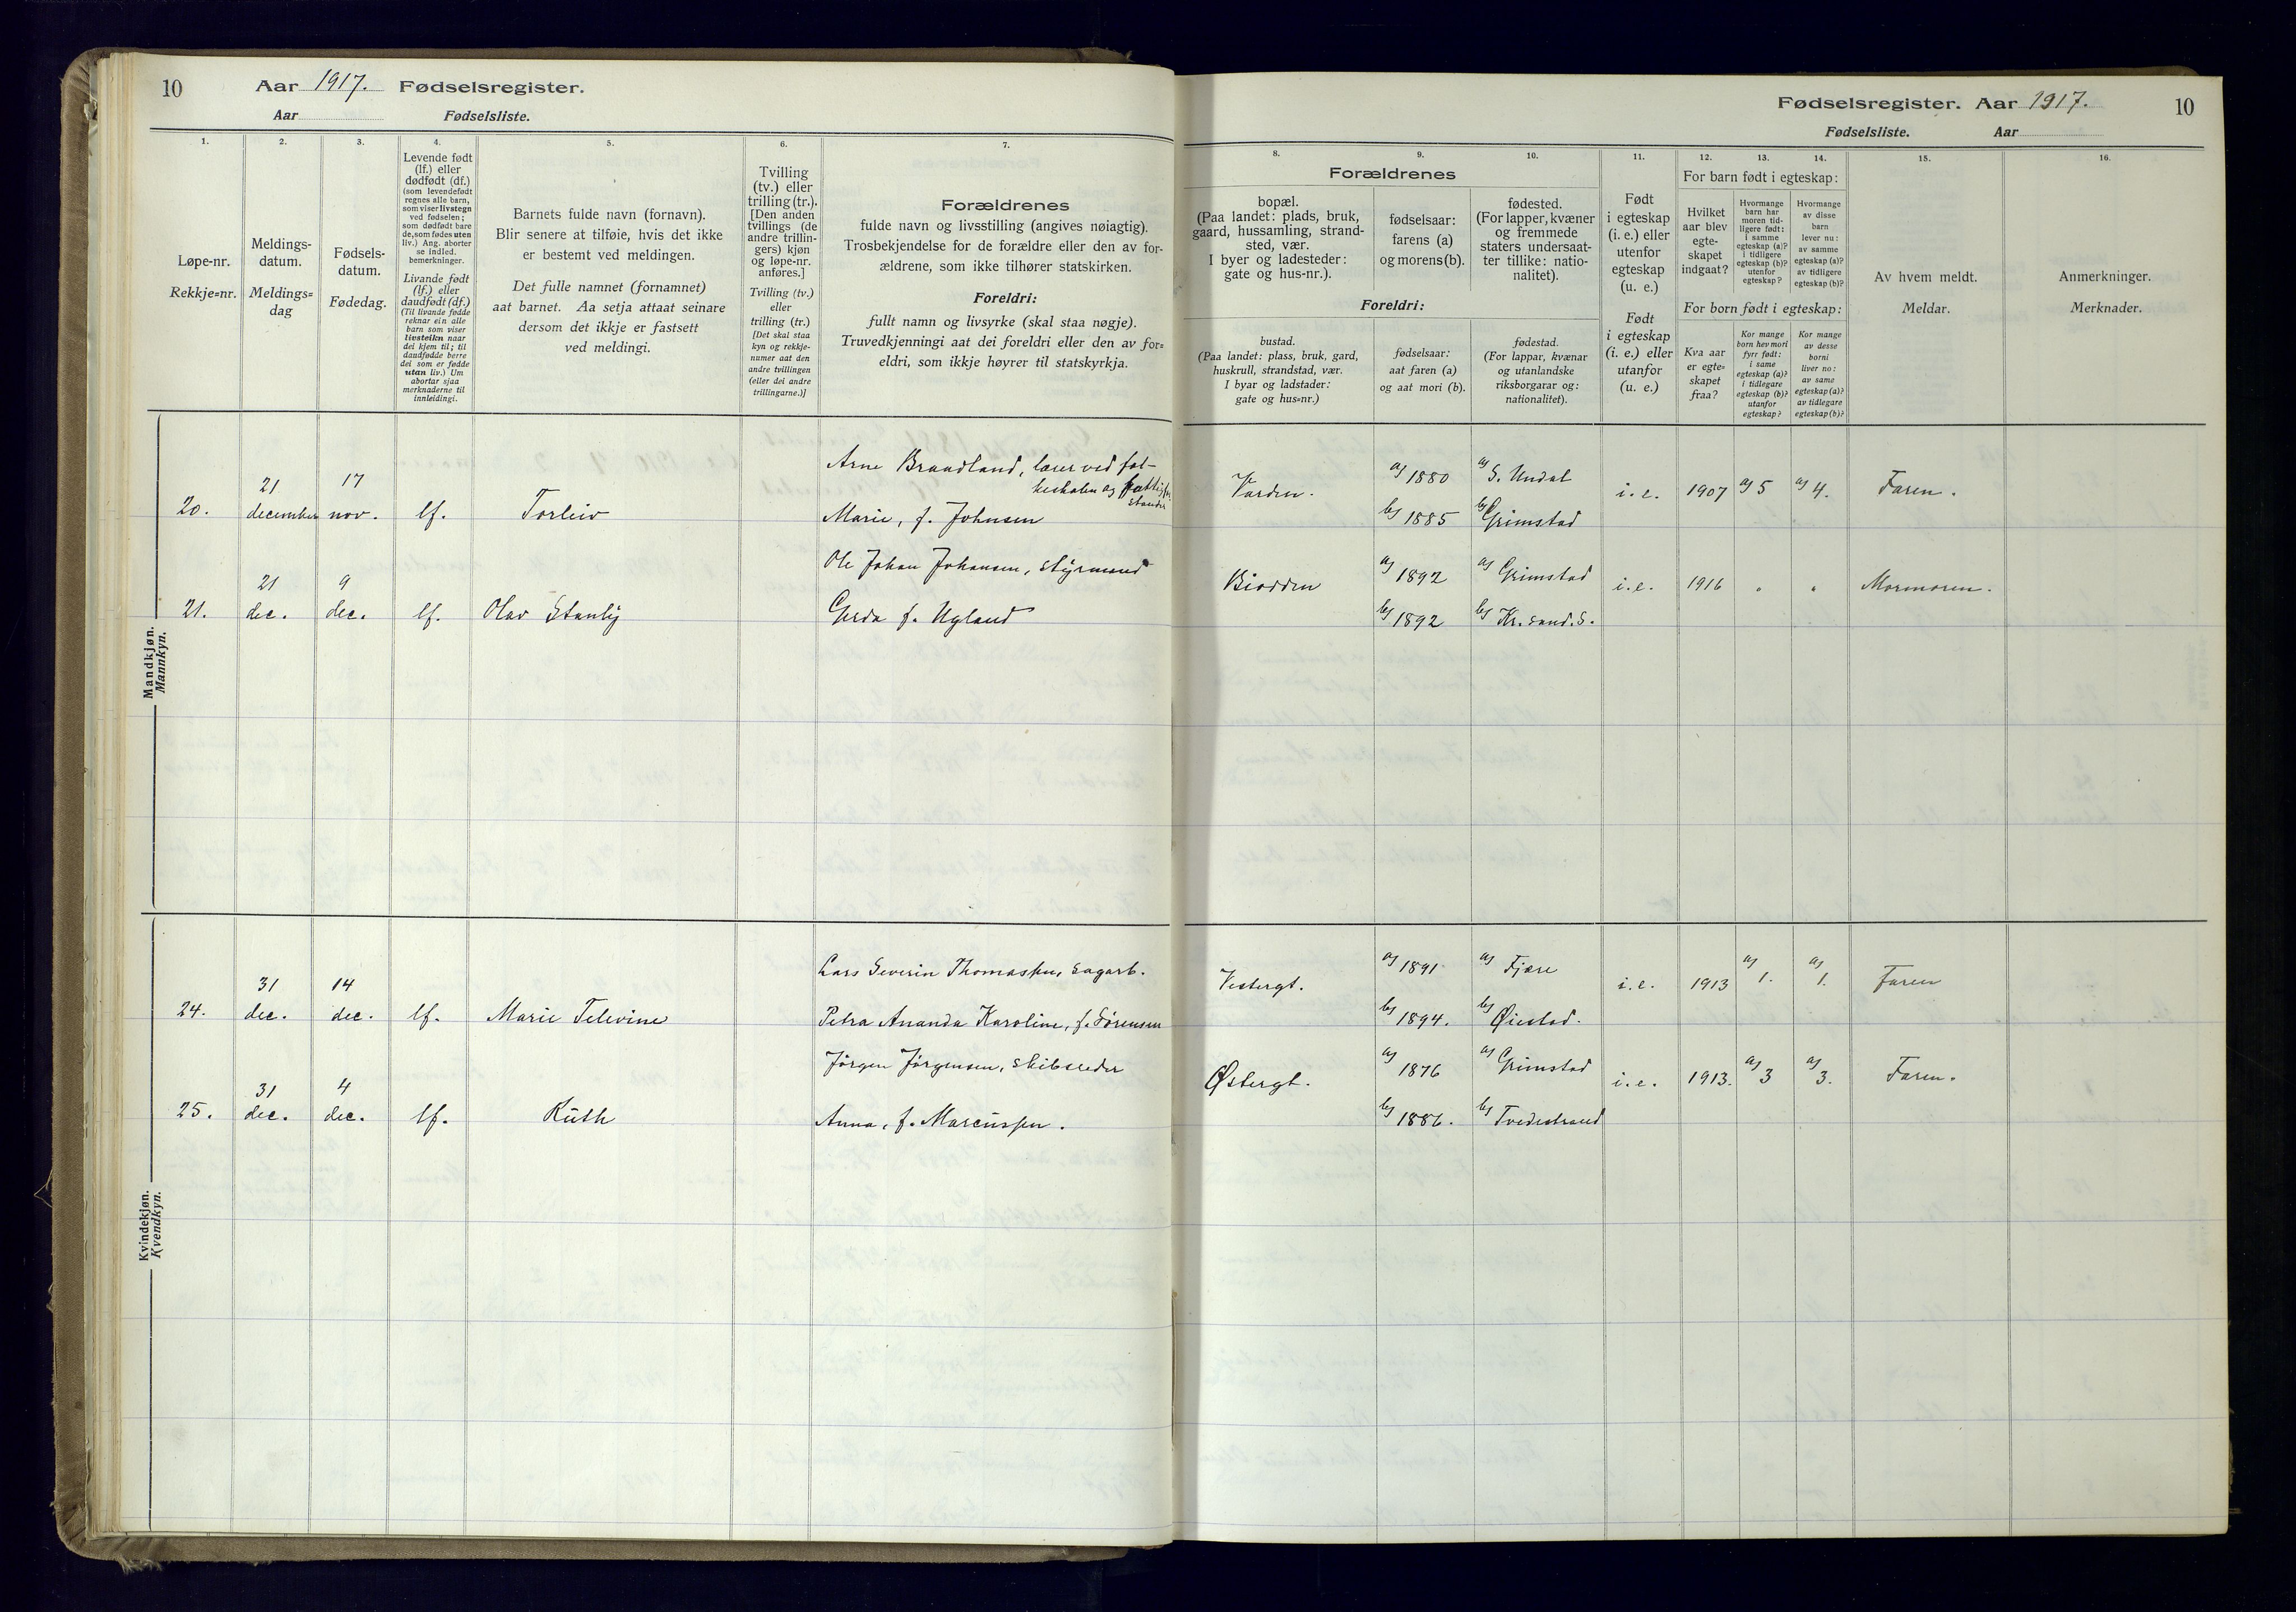 10 Aar 1917. Fødselsregister.
Aar Fødselsliste.
Fødselsregister. Aar 1917. 10
Fødselsliste. Aar
1.
Løpe-nr.
Rekkje=nr.
2.
Meldings-
datum.
Meldings=
dag
3.
Fødsels-
datum.
Fødedag.
4.
Levende født
(lf.) eller
dødfødt (df.)
(som levendefødt
regnes alle barn,
som viser livstegn
ved fødselen;
som dødfødt bare
de, som fødes uten
liv.) Ang. aborter
se indled.
bemerkninger.
Livande født
(lf.) eller
daudfødt (df.)
(Til livande fødde
reknar ein alle
barn som viser
livsteikn naar
dei kjem til; til
daudfødde berre
dei som er fødde
utan liv.) Um
abortar sjaa
merknaderne til
innleidingi.
5.
Barnets fulde navn (fornavn).
Blir senere at tilføie, hvis det ikke
er bestemt ved meldingen.
Det fulle namnet (fornamnet)
aat barnet. Aa setja attaat seinare
dersom det ikkje er fastsett
ved meldingi.
6.
Tvilling
(tv.) eller
trilling (tr.).
[Den anden
tvillings (de
andre trillin-
gers) kjøn
og løpe-nr.
anføres.]
Tvilling (tv.)
eller
trilling (tr.)
[Det skal staa
kyn og rekkje-
numer aat den
andre tvillingen
(eller dei andre
trillingarne.)]
7.
Forældrenes
fulde navn og livsstilling (angives nøiagtig).
Trosbekjendelse for de forældre eller den av for-
ældrene, som ikke tilhører statskirken.
Foreldri:
fullt namn og livsyrke (skal staa nøgje).
Truvedkjenningi aat dei foreldri eller den av for=
eldri, som ikkje høyrer til statskyrkja.
Forældrenes
8.
bopæl.
(Paa landet: plads, bruk,
gaard, hussamling, strand-
sted, vær.
I byer og ladesteder:
gate og hus-nr.).
9.
fødselsaar:
farens (a)
og morens (b).
10.
fødested.
(For lapper, kvæner
og fremmede
staters undersaat-
ter tillike: natio-
nalitet).
Foreldri:
bustad.
(Paa landet: plass, bruk, gard,
huskrull, strandstad, vær.
I byar og ladstader:
gate og hus=nr.)
fødselsaar:
aat faren (a)
og aat mori (b).
fødestad.
(For lappar, kvænar
og utanlandske
riksborgarar og:
nationalitet).
11.
Født
i egteskap
(i. e.) eller
utenfor
egteskap
(u. e.)
Født
i egteskap
(i. e.) eller
utanfor
(u. e.)
12. 13. 14.
For barn født i egteskap:
Hvilket
aar blev
egte-
skapet
indgaat?
Hvormange
barn har
moren tid-
ligere født:
i samme
egteskap (a)?
i tidligere
egteskap (b)?
utenfor
egteskap?
Hvormange
av disse
barn
lever nu:
av samme
egteskap (a)?
av tidligere
egteskap (b)?
For born født i egteskap:
Kva aar
er egte=
skapet
fraa?
Kor mange
born hev mori
fyrr født:
i same
egteskap (a)?
i tidlegare
egteskap (b)?
utanfor
egteskap?
Kor mange
av desse
borni
liver no:
av same
egteskap (a)?
av tidlegare
egteskap (b)?
15.
Av hvem meldt.
Meldar.
16.
Anmerkninger.
Merknader.
Mandkjøn.
Mannkyn.
20. 21 december 17 nov. lf. Torleiv
Arne Brandland, lærer ved fol-
keskolen og
Marie, f. Johnsen
Varden. a) 1880 a) S. Undal i.e. 1907 a) 5 a) 4. Faren.
b) 1885 b) Grimstad
21. 21 dec. 9 dec. lf. Olav Stanly
Ole Johan Johansen, styrmand
Gerda f. Ugland
Biodden a) 1892 a) Grimstad i.e. 1916 " " Mormoren.
b) 1892 b) Kr.sand.S.
Kvindekjøn.
Kvendkyn.
24. 31 dec. 14 dec. lf. Marie Televine
Lars Severin Thomassen, sagarb.
Petra Ananda Karoline, f. Sørensen
Vestergt. a) 1891 a) Fjære i.e. 1913 a) 1. a) 1. Faren
b) 1894. b) Øiestad.
25. 31 dec. 4 dec. lf. Ruth
Jørgen Jørgensen, skibsreder
Anna, f. Marcussen.
Østergt. a) 1876 a) Grimstad i.e. 1913. a) 3 a) 3. Faren.
b) 1886. b) Tvedestrand